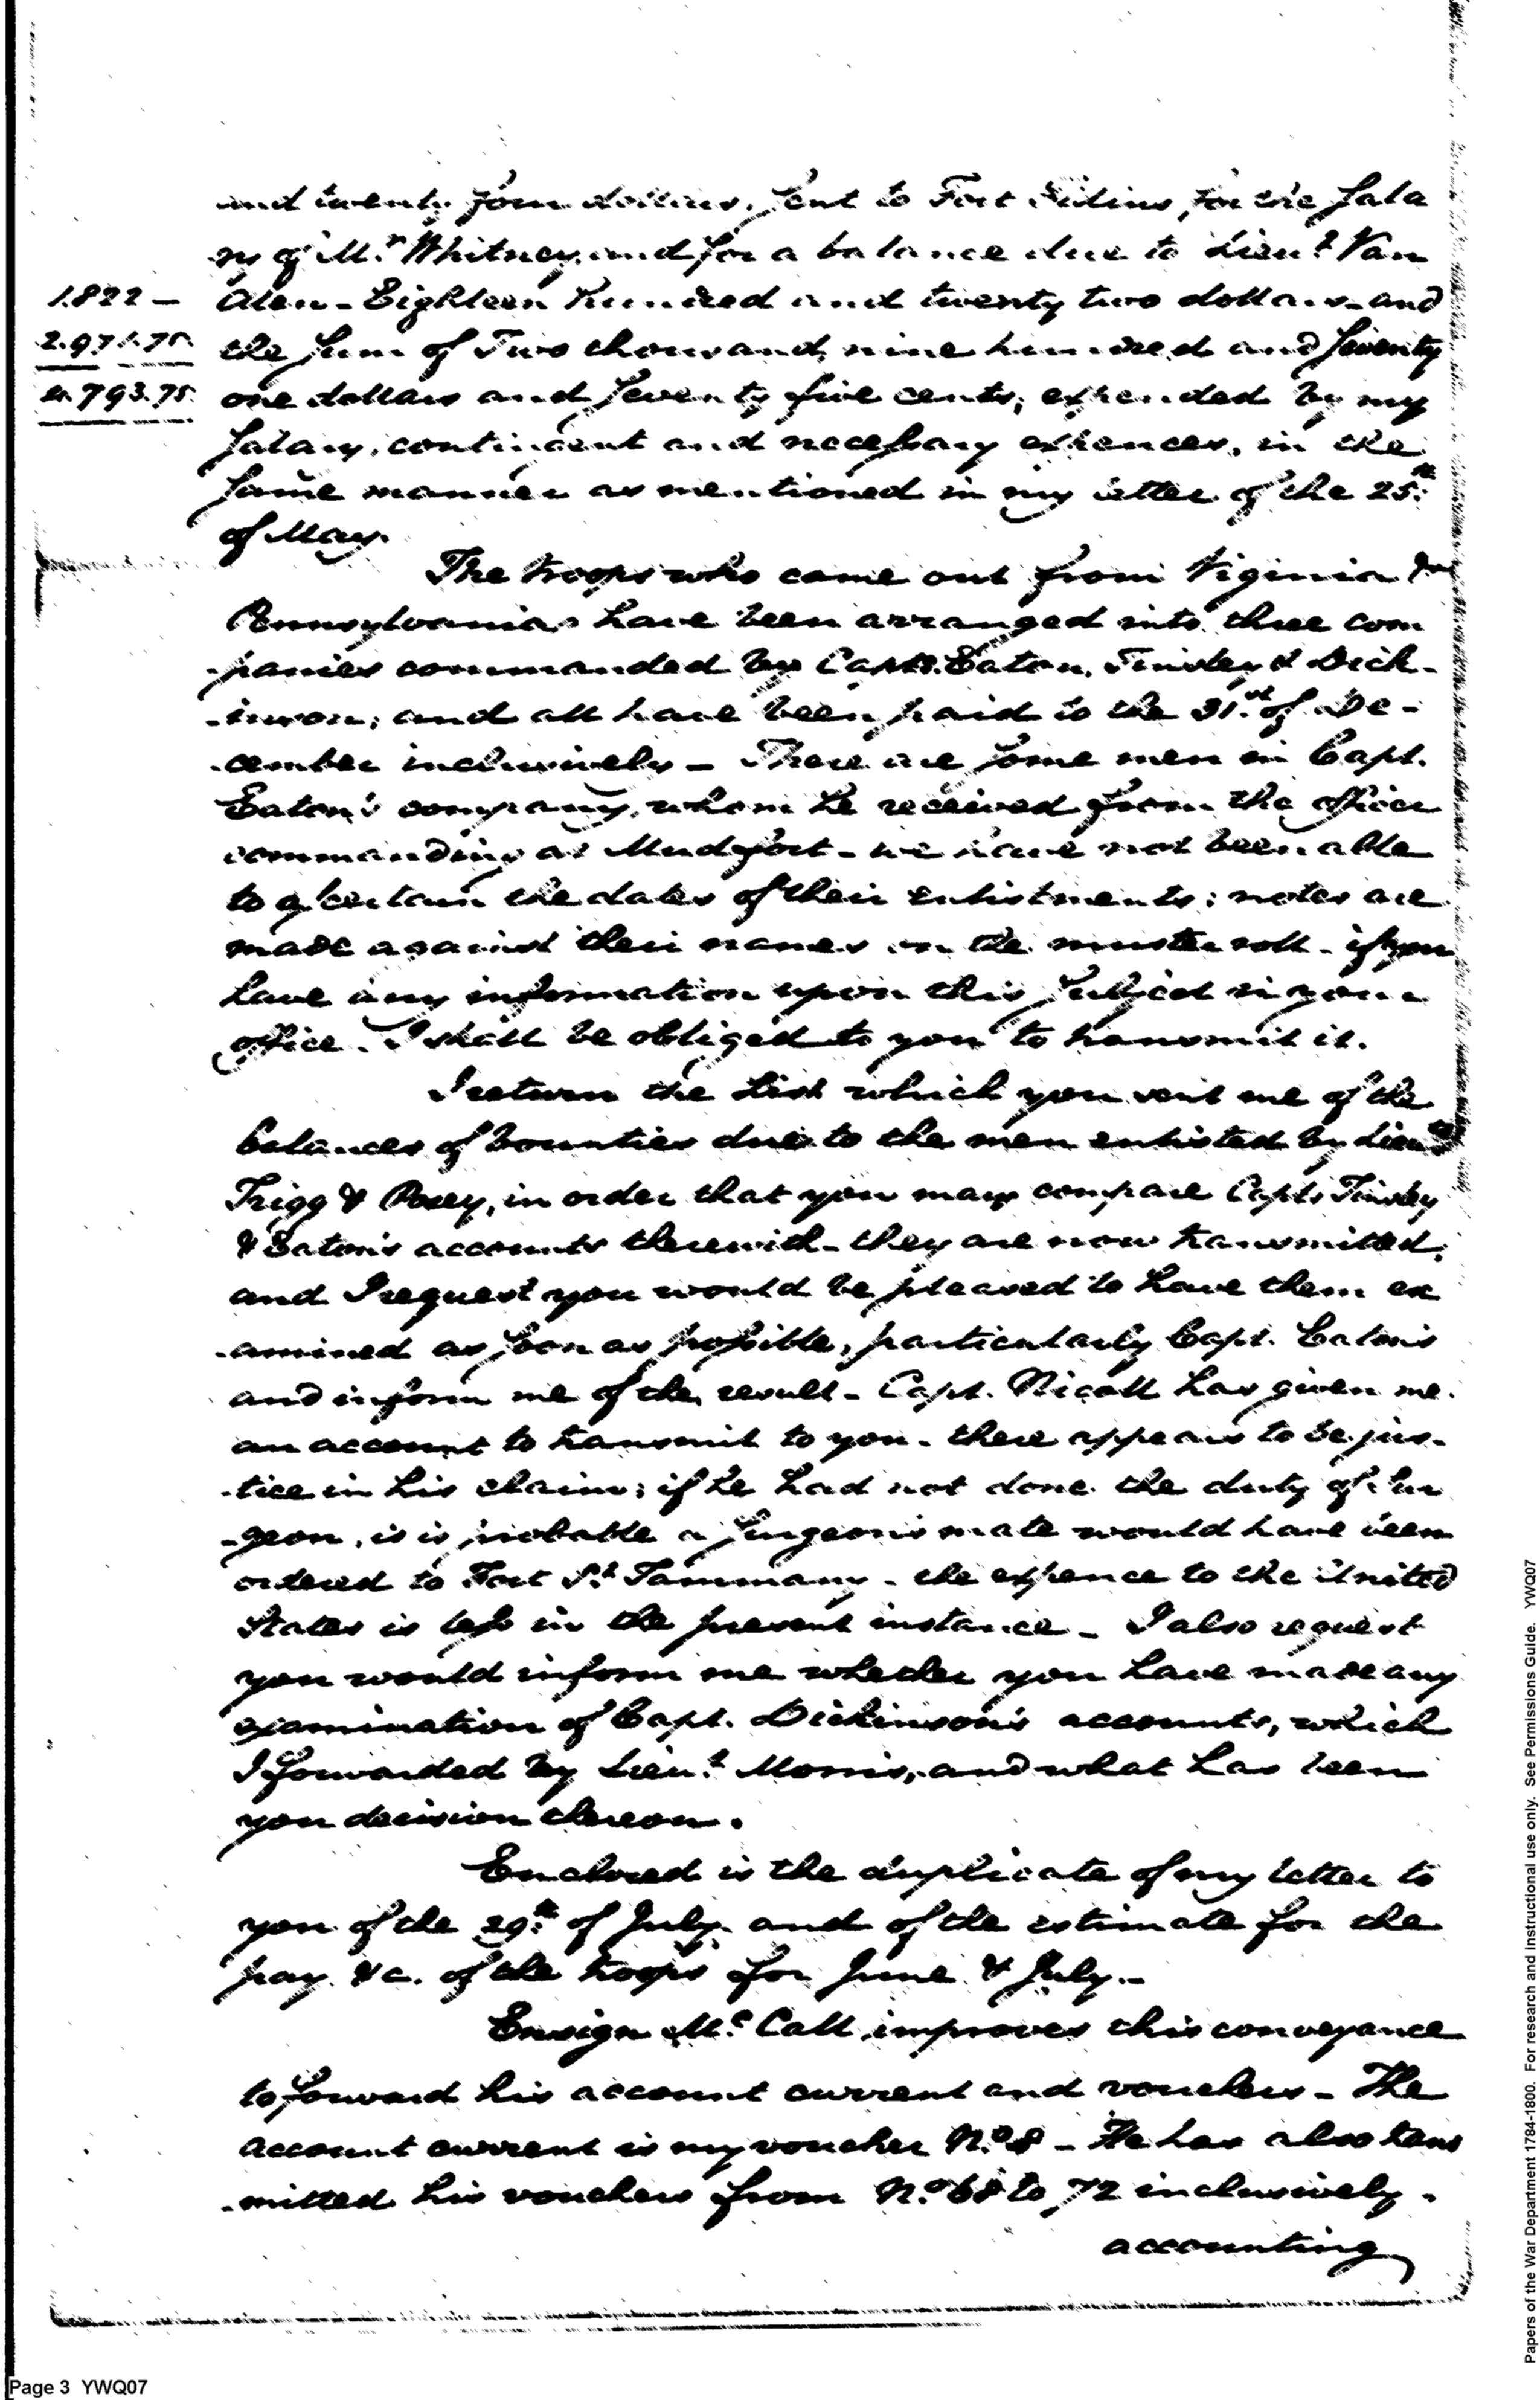 and twenty four dollars, sent to Fort Fidius, for the sala
ry of Mr. Whitney, and for a balance due to Lieut. Van
1.822 — Alen - Eighteen hundred and twenty two dollars - and
2.971.75 the sum of Two thousand, nine hundred and seventy
4.793.75. one dollars and seventy five cents, expended by my
salary, contingent and necessary expences, in the
same manner as mentioned in my letter of the 25th
of May.
The troops who came out from Virginia &
Pennsylvania have been arranged into three com
-panies commanded by Capts. Eaton, Tinsley & Dick-
-inson; and all have been paid to the 31st of De-
-cember inclusively - There are some men in Capt.
Eaton's company, whom he received from the officer
commanding at Mudfort - we have not been able
to ascertain the dates of their enlistments; notes are
made against their names on the muster roll - if you
have any information upon this subject in your
office - I shall be obliged to you to transmit it.
I return the list which you sent me of the
balances of bounties due to the men enlisted by Lieuts
Trigg & Posey, in order that you may compare Capts Tinsley
& Eaton's accounts therewith - they are now transmitted,
and I request you would be pleased to have them ex
-amined as soon as possible, particularly Capt. Eaton's
and inform me of the result - Capt. Nicoll has given me
an account to transmit to you - there appears to be jus-
-tice in his claim; if he had not done the duty of Sur
-geon, is is probable a surgeon's mate would have been
ordered to Fort St. Tammany - the expence to the United
States is less in the present instance - I also request
you would inform me whether you have made any
examination of Capt. Dickinson's accounts, which
I forwarded by Lieut. Morris, and what has been
you decision thereon.
Enclosed is the duplicate of my letter to
you of the 29th of July and of the estimate for the
pay &c. of the troops for June & July. -
Ensign McCall improves this conveyance
to forward his account current and vouchers - The
account current is my voucher No. 8 - He has also trans
-mitted his vouchers from No. 68 to 72 inclusively -
accounting
Page 3 YWQ07
Papers of the War Department 1784-1800. For research and instructional use only. See Permissions Guide. YWQ07